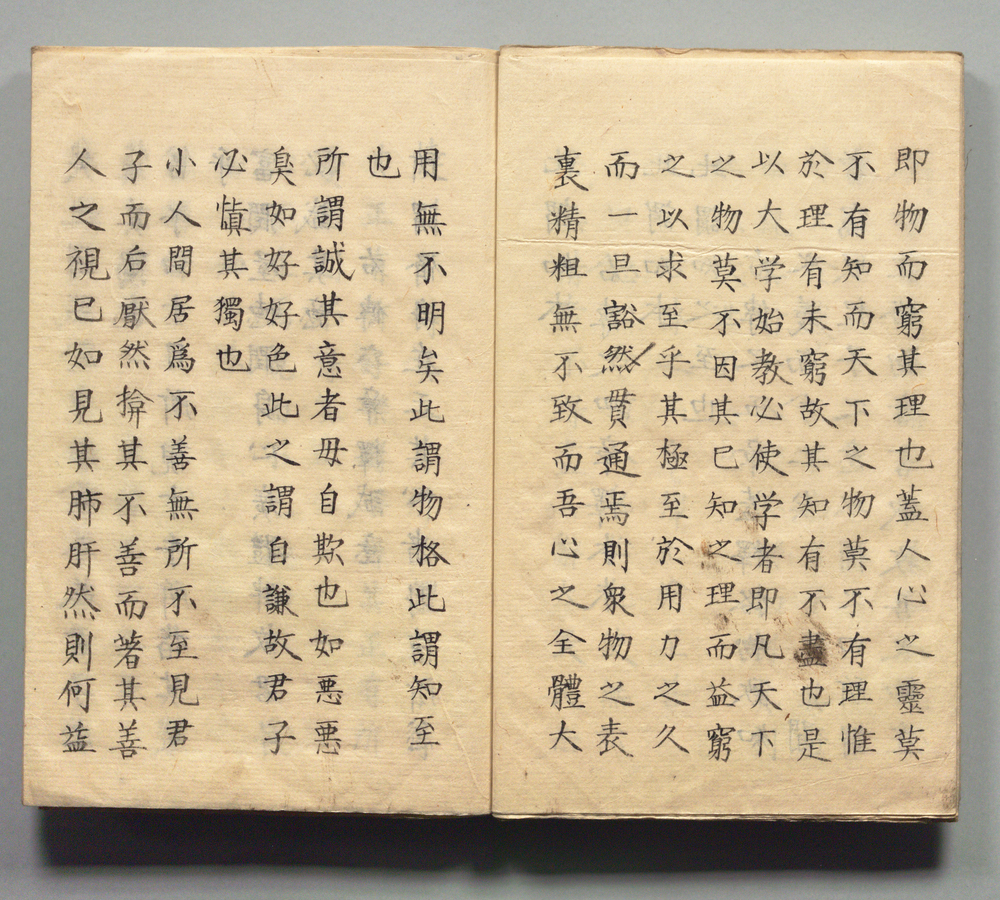 即物而窮其理也蓋人心之靈莫
不有知而天下之物莫不有理惟
於理有未窮故其知有不盡也是
以大学始教必使学者即凡天下
之物莫不因其已知之理而益窮
之以求至乎其極至於用力之久
而一旦豁然貫通焉則衆物之表
裏精粗無不致而吾心之全體大
用無不明矣此謂物格此謂知至
也
所謂誠其意者毋自欺也如悪悪
臭如好好色此之謂自謙故君子
必慎其獨也
小人間居爲不善無所不至見君
子而后厭然揜其不善而著其善
人之視已如見其肺肝然則何益